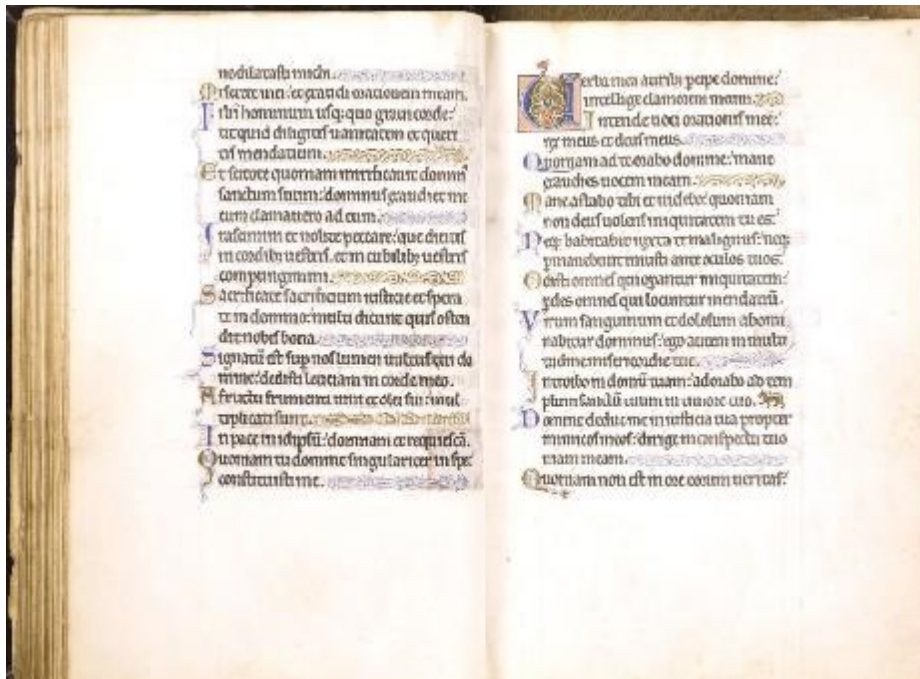 no dilatasti michi.
Miserere mei: et exaudi orationem meam.
Filii hominum usq; quo graui corde:
ut quid diligitis uanitatem et queri
tis mendatium.
Et scitote quoniam mirificauit dominus
sanctum suum: dominus exaudiet me
cum clamauero ad eum.
Irascimini et nolite peccare: que dicitis
in cordib; uestris. et in cubilib; uestris
compungimini.
Sacrificate sacrificium iusticie et spera
te in domino: multi dicunt quis osten
dit nobis bona.
Signatū est sup nos lumen uultus tui do
mine: dedisti leticiam in corde meo.
A fructu frumenti uini et olei sui: mul
tiplicati sunt.
In pace in idipsū: dormiam et requiescā.
Quoniam tu domine singulariter in spe
constituisti me.
Uerba mea aurib; pcipe domine:
intellige clamorem meum.
Intende uoci orationis mee:
rex meus et deus meus.
Quoniam ad te orabo domine: mane
exaudies uocem meam.
Mane astabo tibi et uidebo: quoniam
non deus uolens iniquitatem tu es.
Neq; habitabit iuxta te malignus: neq;
pmanebunt iniusti ante oculos tuos.
Odisti omnes qui opantur iniquitatem:
pdes omnes qui locuntur mendatiū.
Virum sanguinum et dolosum abomi
nabitur dominus: ego autem in multi
tudine misericordie tue.
Introibo in domū tuam: adorabo ad tem
plum sanctū tuum in timore tuo.
Domine deduc me in iusticia tua propter
inimicos meos: dirige in conspectu tuo
uiam meam.
Quoniam non est in ore eorum ueritas: